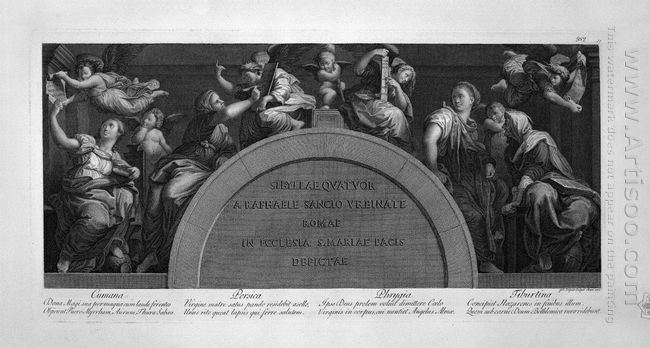 982
SIBYLLAE QVATVOR
A RAPHAELE SANCIO VRBINATE
ROMAE
IN ECCLESIA S. MARIAE PACIS
DEPICTAE
Cumana
Dona Magi sua per magna cum laude ferentes
Persica
Virgine matre satus pando residebit asello,
qui ferre salutem.
Phrygia
Ipse Deus prolem voluit dimittere Coelo
Virginis in corpus, nuntiet Angelus Almae.
Tiburtina
Concipiet Nazareus in finibus illum
Quem sub carne Deum Bethlemica rura videbunt.
www.Artisoo.com
This watermark does not appear on the painting